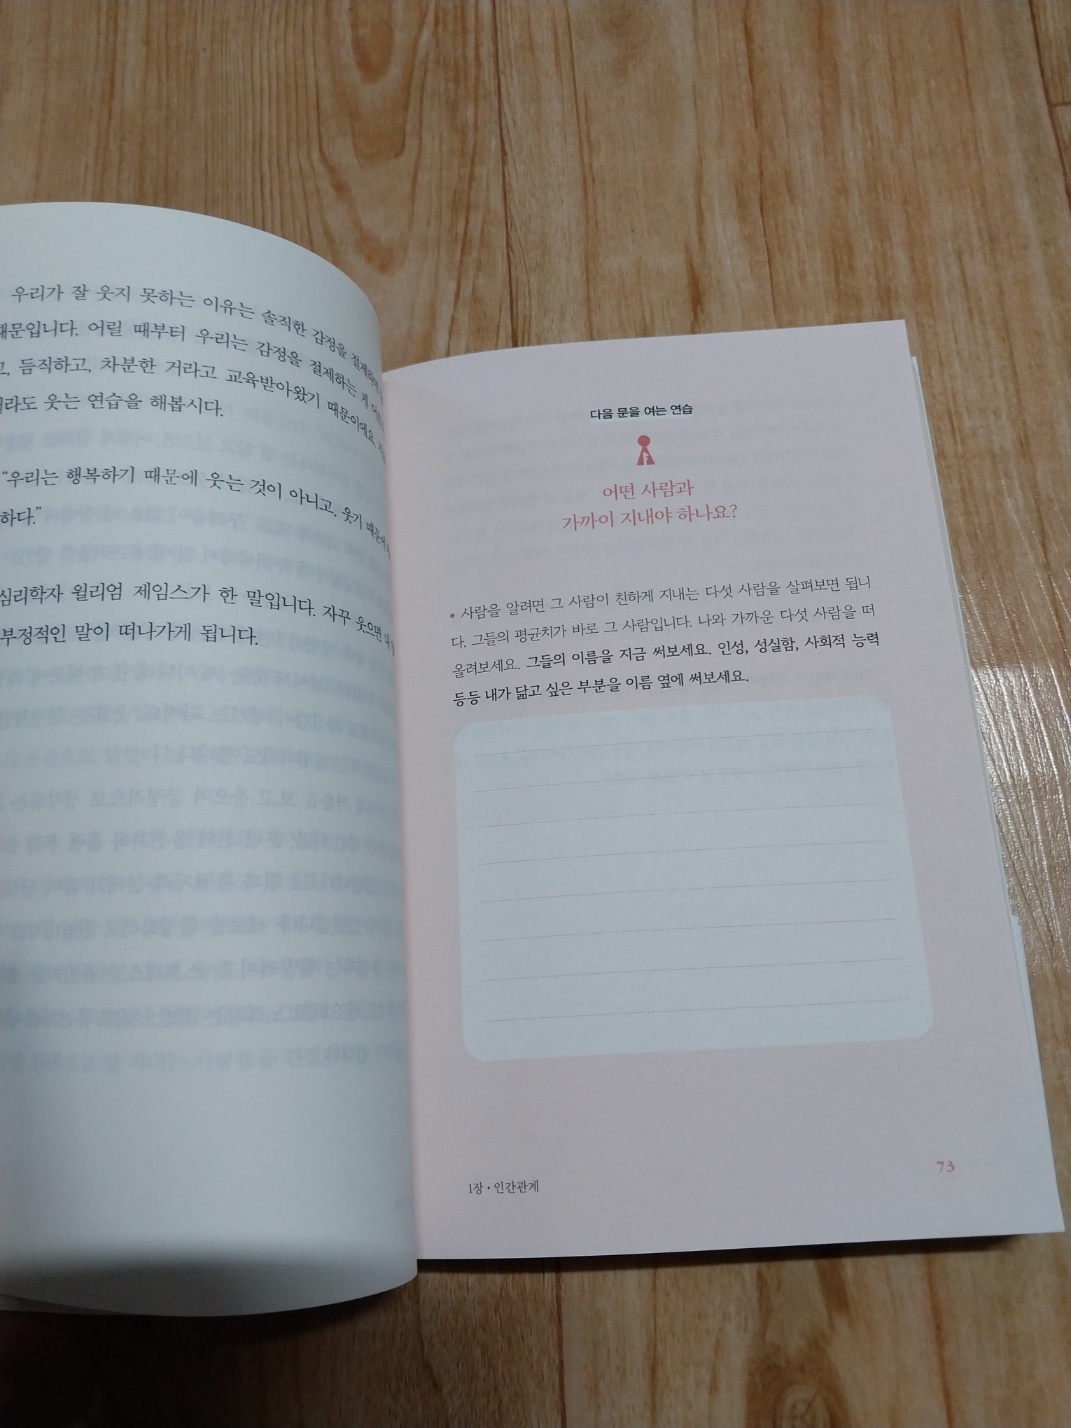 우리가 잘 웃지 못하는 이유는 솔직한 감정을 절제하
때문입니다. 어릴 때부터 우리는 감정을 절제하는 게
고, 듬직하고, 차분한 거라고 교육받아왔기 때문이에요.
라도 웃는 연습을 해봅시다.
“우리는 행복하기 때문에 웃는 것이 아니고, 웃기 때문에
하다.”
심리학자 윌리엄 제임스가 한 말입니다. 자꾸 웃으면
부정적인 말이 떠나가게 됩니다.
다음 문을 여는 연습
어떤 사람과
가까이 지내야 하나요?
• 사람을 알려면 그 사람이 친하게 지내는 다섯 사람을 살펴보면 됩니
다. 그들의 평균치가 바로 그 사람입니다. 나와 가까운 다섯 사람을 떠
올려보세요. 그들의 이름을 지금 써보세요. 인성, 성실함, 사회적 능력
등등 내가 닮고 싶은 부분을 이름 옆에 써보세요.
1장 • 인간관계
73